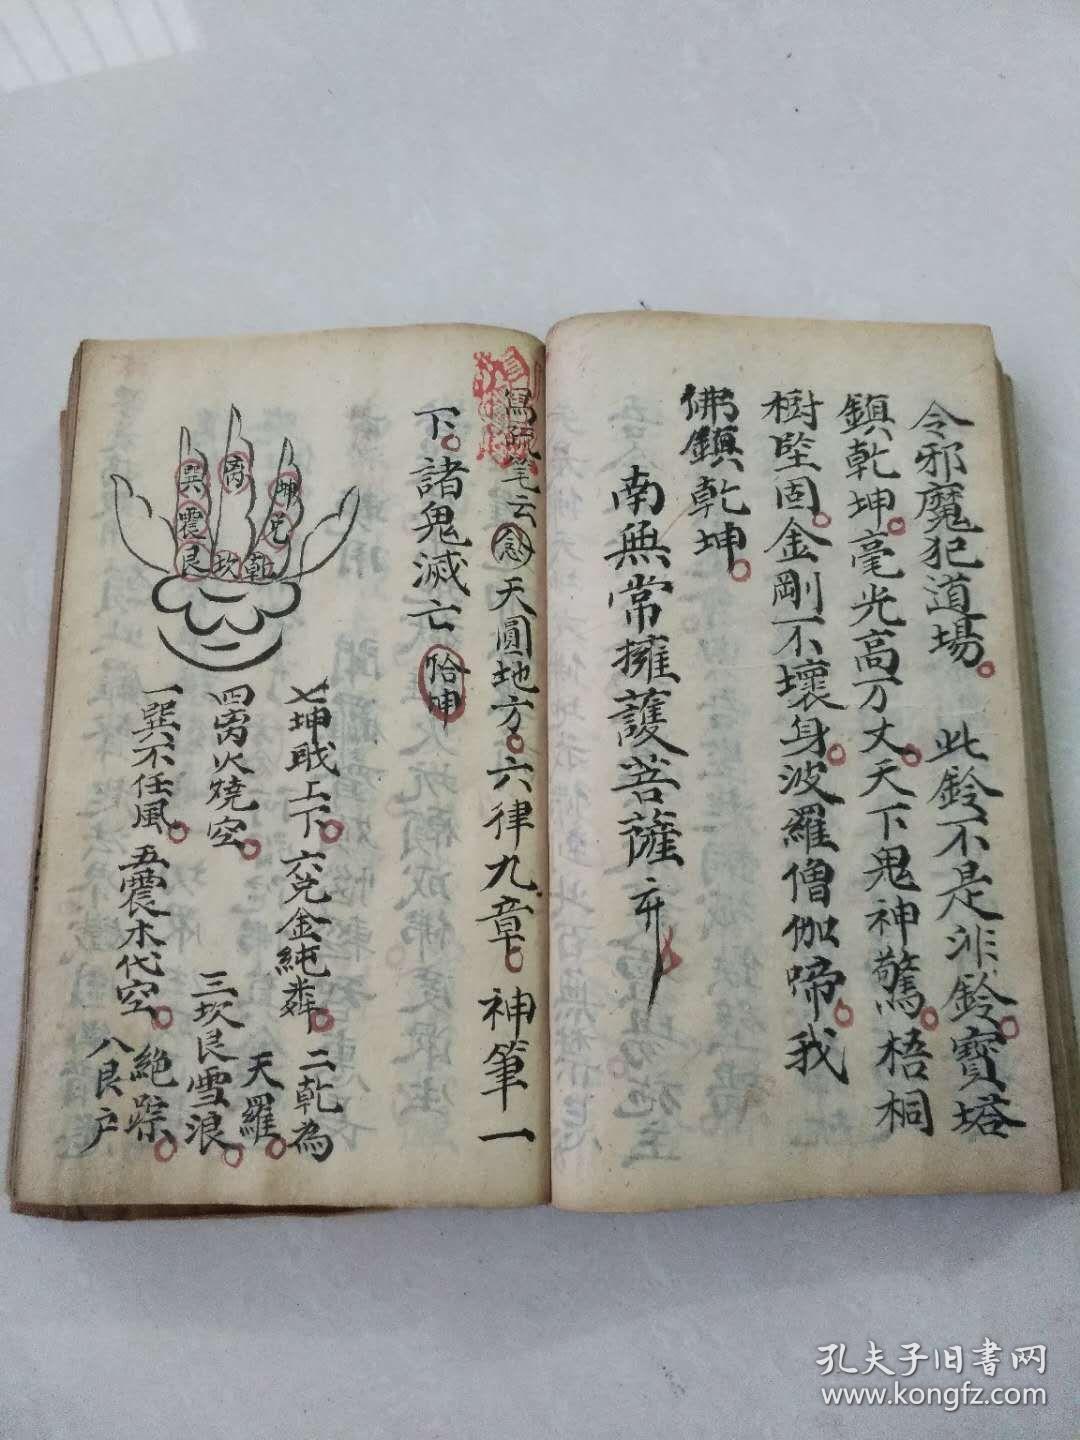 令邪魔犯道場。此鈴不是非鈴。寶塔
鎮乾坤。毫光高万丈。天下鬼神驚。梧桐
樹堅固。金剛不壞身。波羅僧伽啼。我
佛鎮乾坤。
南無常擁護菩薩
筆云 念 天圓地方。六律九章。神筆一
下。諸鬼滅亡
巽 离 坤
震 兌
艮 坎 乾
七坤戰上下。六兌金純 二乾為
天羅。
四离火燒空。三坎艮雪浪。
一巽不任風。五震木代空。絕踪。
八艮户
孔夫子旧書网
www.kongfz.com